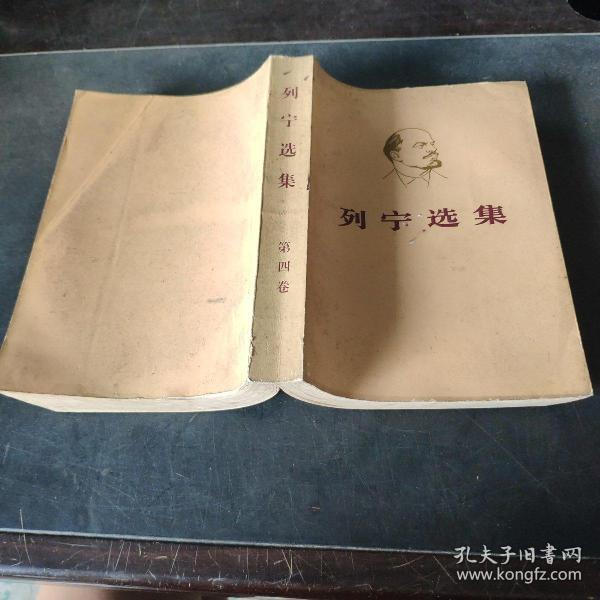 列宁选集
第四卷
列宁选集
孔夫子旧書网
www.kongfz.com